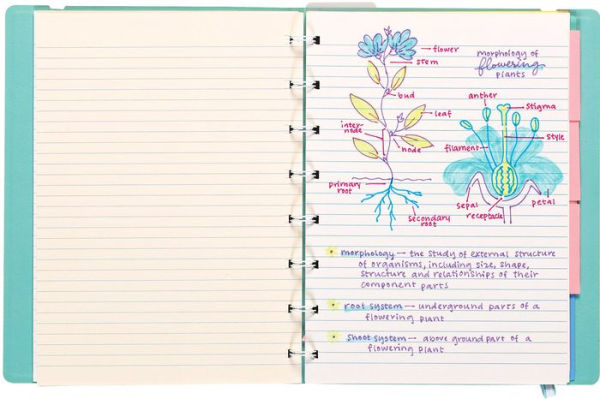 flower
stem
morphology of
flowering
plants
bud
anther
stigma
leaf
inter-
node
style
node
filament
primary
root
sepal
petal
receptacle
secondary
root
morphology — the study of external structure
of organisms, including size, shape,
structure and relationships of their
component parts
root system — underground parts of a
flowering plant
shoot system — above ground part of a
flowering plant